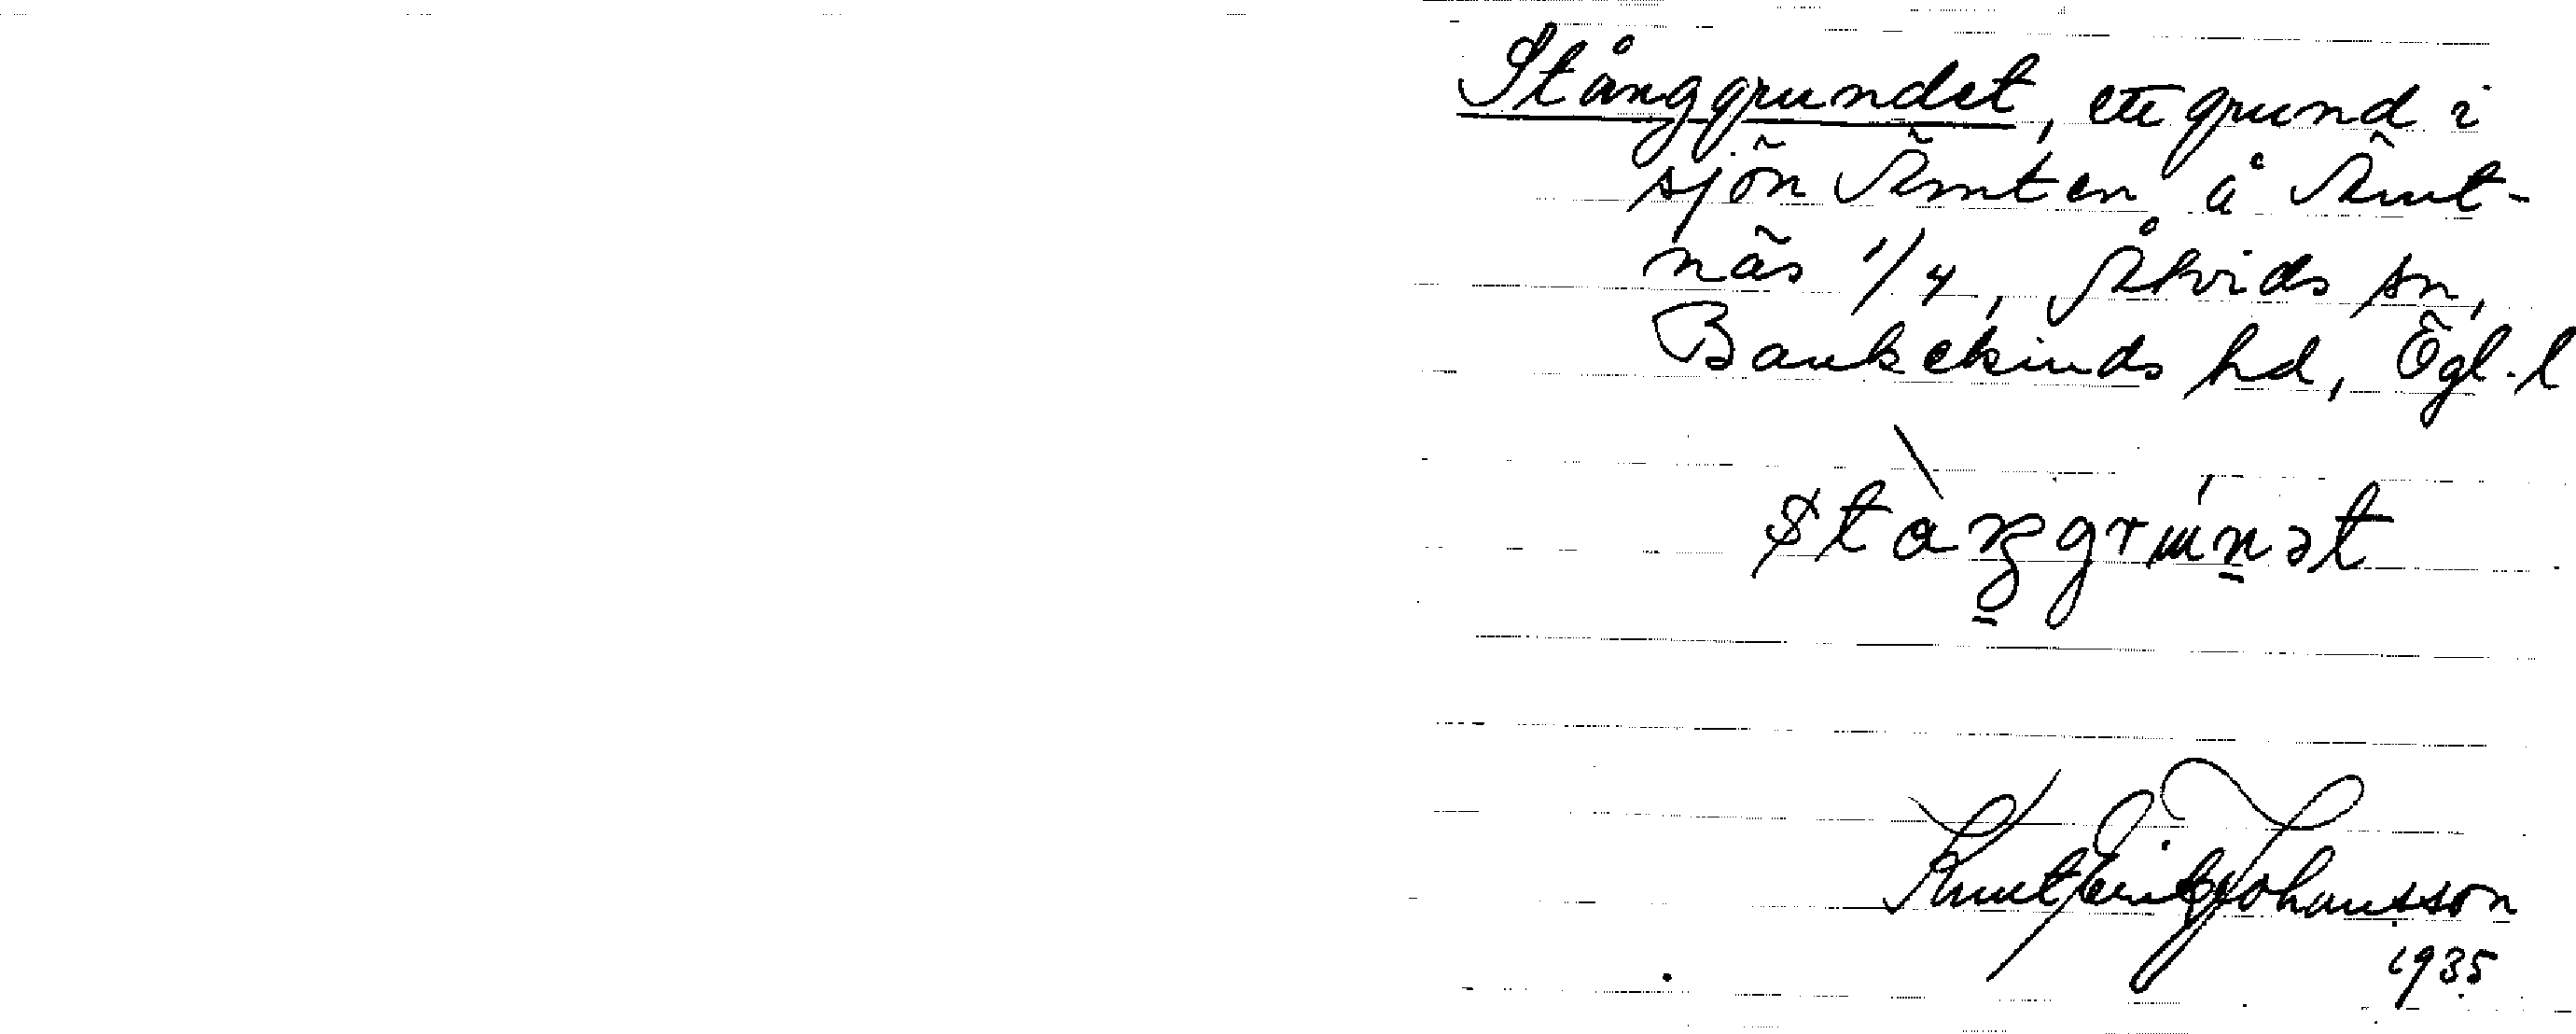 Stånggrundet, ett grund i
sjön Ämten å Ämt-
näs 1/4, Åtvids sn,
Bankekinds hd, Ögl. l
Knut Erik Johansson
1935